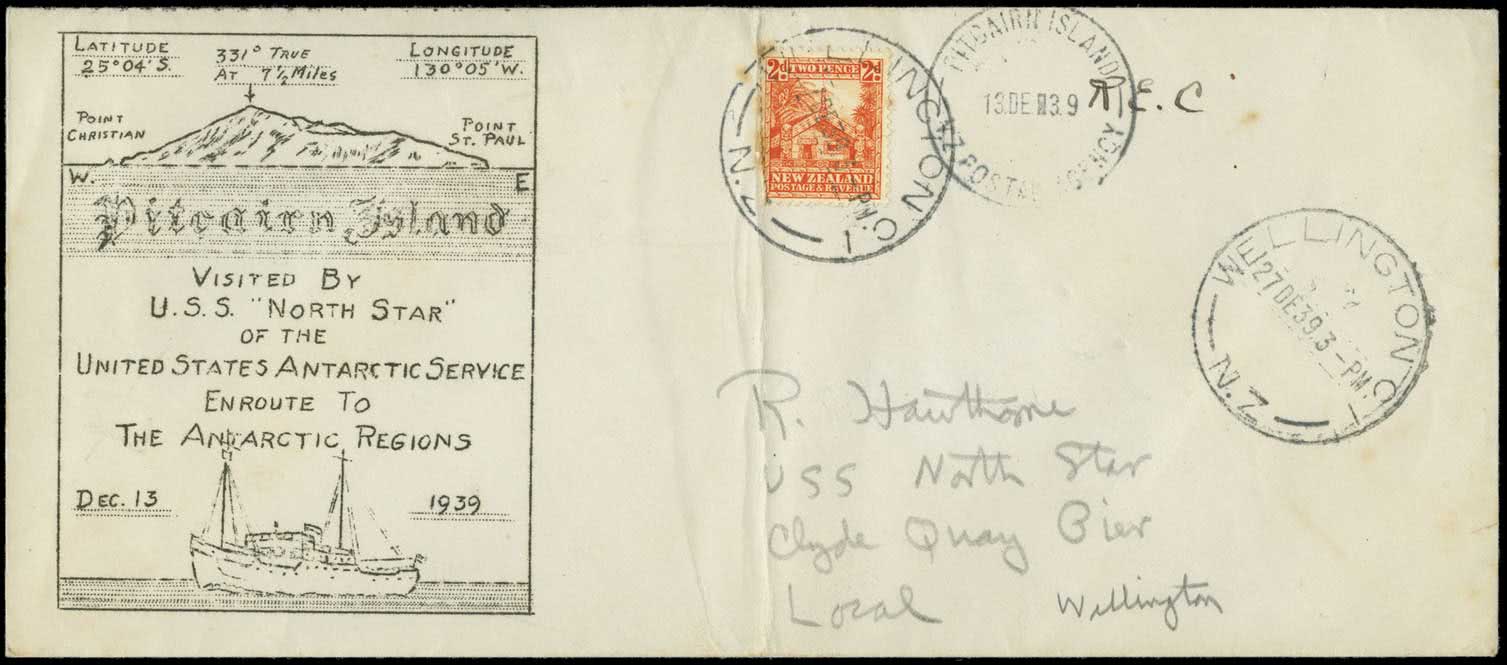 LATITUDE
25°04' S.
331° TRUE
AT 7½ MILES
LONGITUDE
130°05' W.
POINT
CHRISTIAN
POINT
ST. PAUL
W.
E
Pitcairn Island
VISITED BY
U.S.S. "NORTH STAR"
OF THE
UNITED STATES ANTARCTIC SERVICE
ENROUTE TO
THE ANTARCTIC REGIONS
DEC. 13
1939
2d TWO PENCE 2d
NEW ZEALAND
POSTAGE & REVENUE
WELLINGTON C.1
N.Z.
PM.
PITCAIRN ISLAND
13DE 39
N.Z. POSTAL AGENCY
R.E.C
WELLINGTON C.1
27DE39.3-PM.
N.Z.
R. Hawthorne
USS North Star
Clyde Quay Pier
Local Wellington